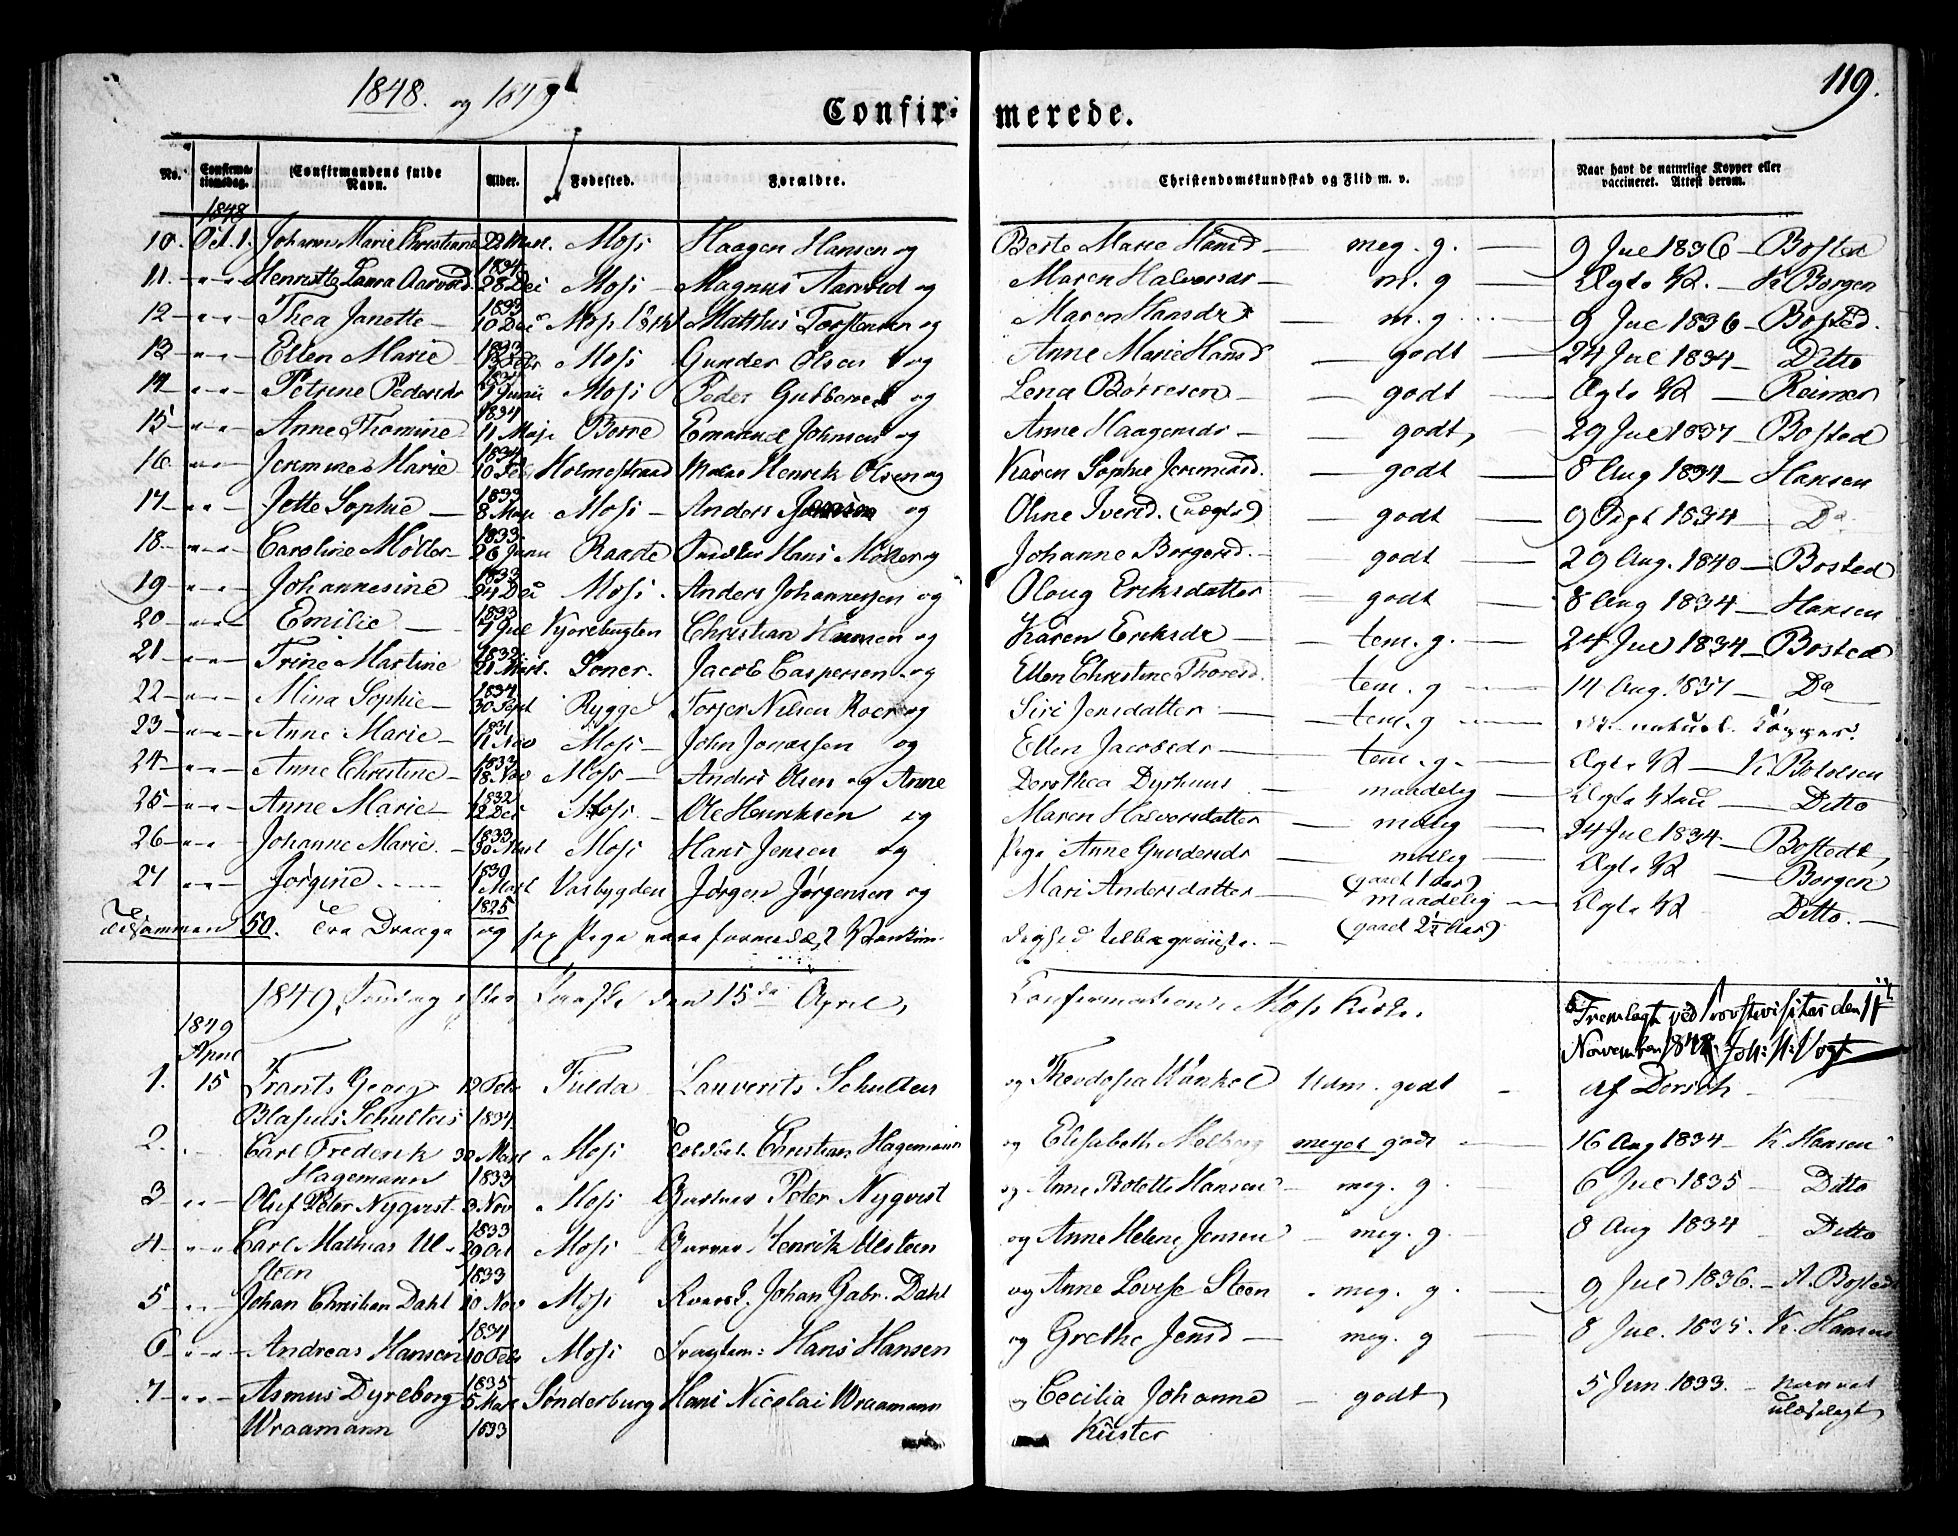 1848. og 1849
119.
Confir- merede.
No. Confirmationsdag. Confirmandens fulde Navn. Alder. Fødested. Forældre. Christendomskundskab og Flid m. v. Naar havt de naturlige Kopper eller vaccineret. Attest derom.
1848
10. Oct. 1. Johanne Marie Christiane 22 Mart. Moss Haagen Hansen og Berte Marie Hansd — meg. g. — 9 Jul 1836 — Bosted
1834
11. " " Henriette Laura Aarvold 28 Dec Moss — Magnus Aarvold og Maren Halvorsdr — m. g — Aglo 42. — K Borgen
1833
12 — " " Thea Janette — 10 Dec Moss Matthis Torstensen og Maren Hansdr — m. g — 9 Jul 1836 — Bosted.
1833
13 — " " Ellen Marie Moss Gunder Olsen og Anne Marie Hansd — godt — 24 Jul 1834 — Ditto
14 — " " Petrine Pedersdr 7 Junii Moss Peder Gulbrandsen og Lena Børresen — godt — 42 — Reimer
1834
15 — " " Anne Thomine 11 Maji Borre Emanuel Johnsen og Anne Haagensdr — godt — 29 Jul 1837 — Bosted
1834
16. " " Jeremine Marie 10 Feb Holmestrand Henrik Olsen og Karen Sophie Jeremiasd. — godt — 8 Aug 1834 — Hansen
1833
17 — " " Jette Sophie — 8 Mai Moss — Anders og Oline Iversd. (uægte) — godt — 9 Sept 1834 — Do
1833
18. — " " Caroline Møller — 26 Juni Raade Hans Møller og Johanne Borgersd. — godt — 29 Aug. 1840 — Bosted
1833
19 — " " Johannesine 24 Dec Moss. Anders Johannessen og Oloug Eriksdatter — godt — 8 Aug 1834 — Hansen
1833
20 — " " Emilie — 7 Jul Kjørebugten Christian Hansen og Karen Eriksdr — tem. g. — 24 Jul 1834 — Bosted
1832
21 — " " Trine Martine 21 Mart. Soner. Jacob Caspersen og Ellen Christine Thoresd. tem. g — 14 Aug. 1837 — Do
1834
22 — " " Mina Sophie — 30 Sept Rygge Torger Nilsen Roer og Siri Jensdatter — tem. g — naturl. Kopper.
1831
23 — " " Anne Marie — 11 Nov Moss — John Jonassen og Ellen Jacobsdr — tem. g. — 42 — K. Botolsen
1833
24 — " " Anne Christine — 18 Nov Moss — Anders Olsen og Anne Dorothea Dyrhuus — maadelig — Ditto
1832
25 — " " Anne Marie — 12 Dec Moss. Ole Henriksen og Maren Halvorsdatter — maalig — 24 Jul 1834 — Bostedt
1833
26 — " " Johanne Marie. — 30 Mart Moss Hans Jensen og Pige Anne Gundersdr — maalig — 42 — Borgen
1830
27 " " — Jørgine. 1 Mart Vasbygden Jørgen Jørgensen og Mari Andersdatter — (gaaet 1 Aar) maadelig — 42 — Ditto. —
1825
Tilsammen 50. Tre Drenge og sex Pige vare formedelst Vankun- dighed tilbageviiste. — (gaaet 2½ Aar)
1849, Søndag efter Paaske den 15de April, Confirmation i Moss Kirke.
Fremlagt ved Provstevisitas den 17
November 1848. Joh: H: Vogt
1849
April
1. 15 Frants Georg 12 Febr Fulda Lauverits Schulteis og Theodosia Künkel Udm. godt - af Dorsch —
Blasius Schulteis 1834
2. " — Carl Frederik 30 Mart Moss Christian Hagemann og Elisabeth Molberg meget godt — 16 Aug 1834 — K. Hansen
Hagemann 1833
3 " " — Oluf Peter Nyqvist 3 Nov Moss Peter Nyqvist og Anne Bolette Hansen — meg. g. — 6 Jul 1835 — Ditto
1833
4 — " " Carl Mathias Ul- 29 Oct Moss — Henrik Ulsteen og Anne Helene Jensen — meg. g. — 8 Aug 1834 Ditto
steen 1833
5 " — Johan Christian Dahl 10 Nov Moss Johan Gabr. Dahl og Anne Lovise Steen — meg. g. — 9 Jul 1836. — A. Bosted
1834
6 — " " — Andreas Hansen 10 Febr Moss Hans Hansen og Grethe Jensd — meg. g — 8 Jul. 1835. K. Hansen
1835
7 — " " — Asmus Dyreborg 5 Mart Sønderburg Hans Nicolai Wraamann og Cecilia Johanne — godt, 5 Jun 1833. — Navnet
Wraamann 1833 Küster ulæseligt